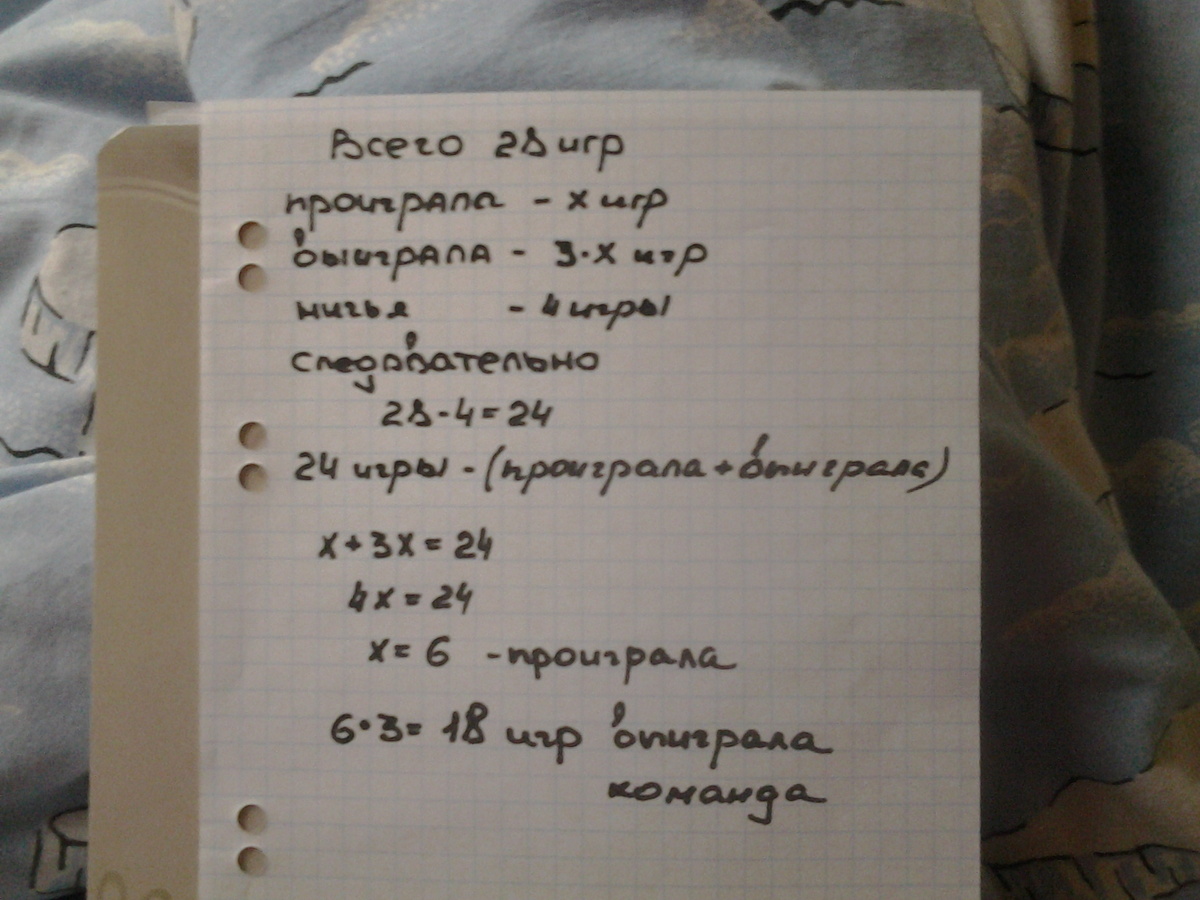 Всего 28 игр
проиграла - x игр
выиграла - 3·x игр
ничья - 4 игры
следовательно
28-4=24
24 игры - (проиграла + выиграла)
x+3x=24
4x=24
x=6 -проиграла
6·3=18 игр выиграла
команда